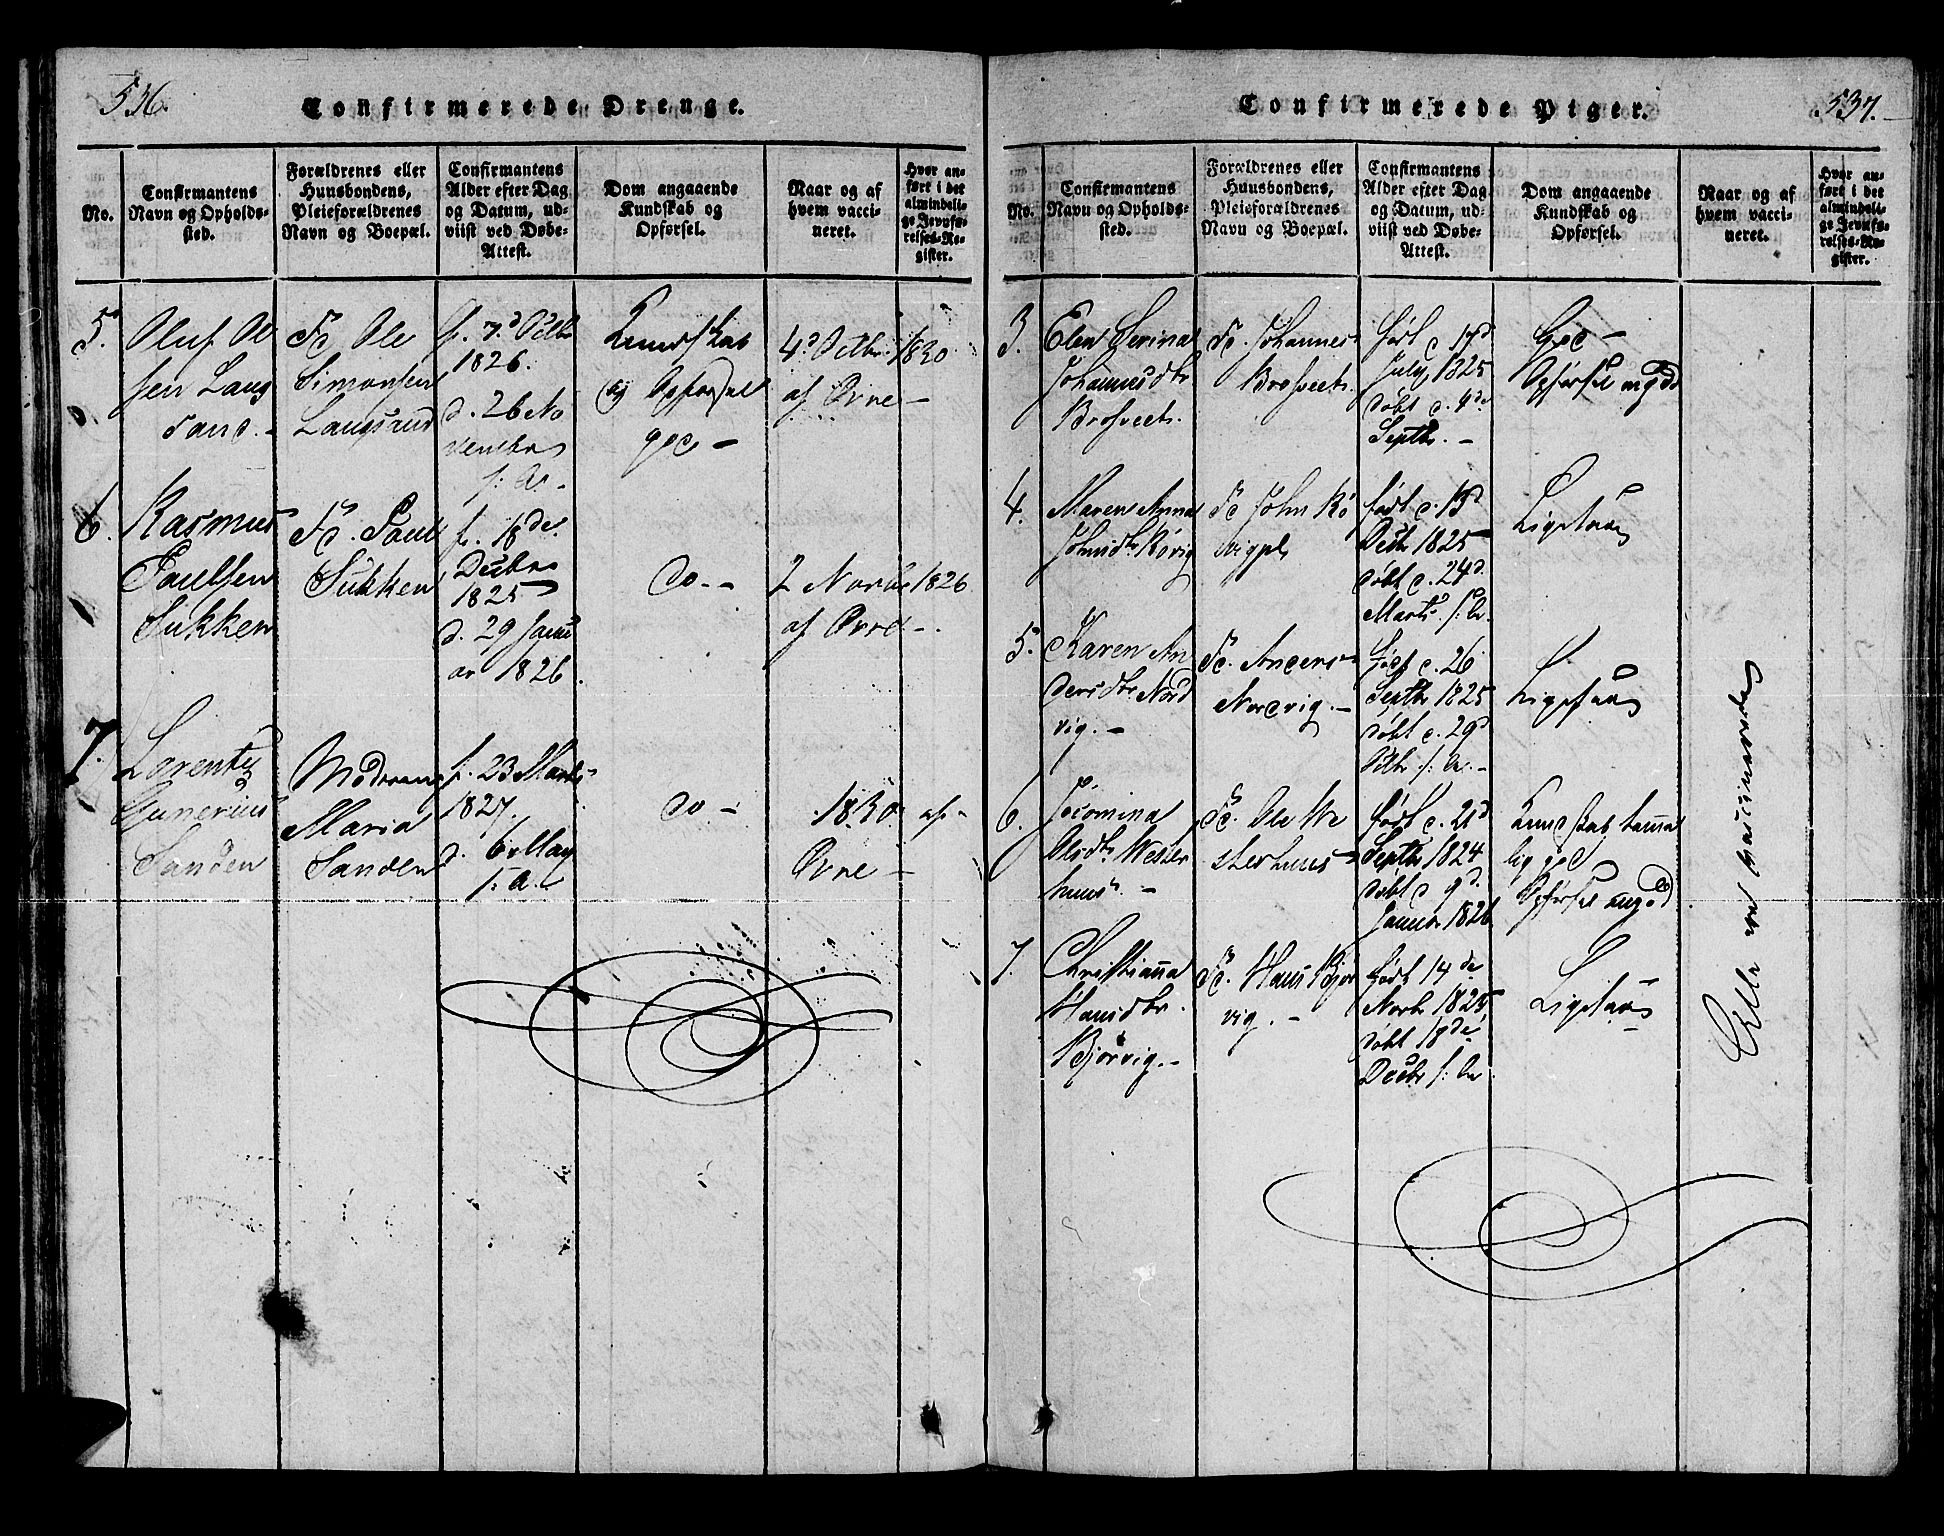 536.
Confirmerede Drenge.
No.
Confirmantens
Navn og Opholds-
sted.
Forældrenes eller
Huusbondens,
Pleieforældrenes
Navn og Boepæl.
Confirmantens
Alder efter Dag
og Datum, ud-
viist ved Døbe-
Attest.
Dom angaaende
Kundskab og
Opførsel.
Naar og af
hvem vacci-
neret.
Hvor an-
ført i det
almindeli-
ge Jevnfø-
relses-Re-
gister.
5.
Oluf Ol
sen Lang
sand.-
Fd. Ole
Simonsen
Langsand
f. 7d Octbr
1826.
d. 26 No
vembr
s: A.
Kundskab
og Opførsel
god -
4d Octbr. 1830
af Ovne -
6.
Rasmus
Paulsen
Sukken
Fd. Paul
Sukken
f. 18de
Decbr
1825
d. 29 Janu
ar 1826.
do. -
2 Novbr 1826
af Ovne -.
7.
Lorents
Gunerius
Sanden
Moderen
Maria
Sanden
f. 23 Marts
1827.
d. 6 May
s: A.
do -
1830. af -
Ovne -
537.
Confirmerede Piger.
No.
Confirmantens
Navn og Opholds-
sted.
Forældrenes eller
Huusbondens,
Pleieforældrenes
Navn og Boepæl.
Confirmantens
Alder efter Dag
og Datum, ud-
viist ved Døbe-
Attest.
Dom angaaende
Kundskab og
Opførsel.
Naar og af
hvem vacci-
neret.
Hvor an-
ført i det
almindeli-
ge Jevnfø-
relses-Re-
gister.
3.
Elen Serina
Johannesdtr
Brosveet.
Fd. Johannes
Brosveet.
født d. 17d
July 1825
døbt d. 4de
Septbr. -
God -
Opførsel
4.
Maren Anna
Johnsdtr Rørvig
Fd John Rø
rvig
født d. 15d
Decbr 1825
døbt d. 24d
Marts s: A.
Ligesaa
5.
Karen An
dersdtr Nord
vig. -
Fd. Anders
Nordvig. -
født d. 26
Septbr 1825
døbt d. 29d
Octbr s: A. -
Ligesaa
6.
Jocomina
Olsdtr Wester
huus. -
Fd. Ole We
sterhuus
født d. 21d
Septbr 1824
døbt d 9d.
Januar 1826
Kundskab temme
lig god
Opførsel
7.
Christianna
Hansdtr.
Bjørvig. -
Fd. Hans Bjør
vig. -
født 14de
Novbr 1825
døbt 18de
Decbr s: A.
Ligesaa
vaccinerede